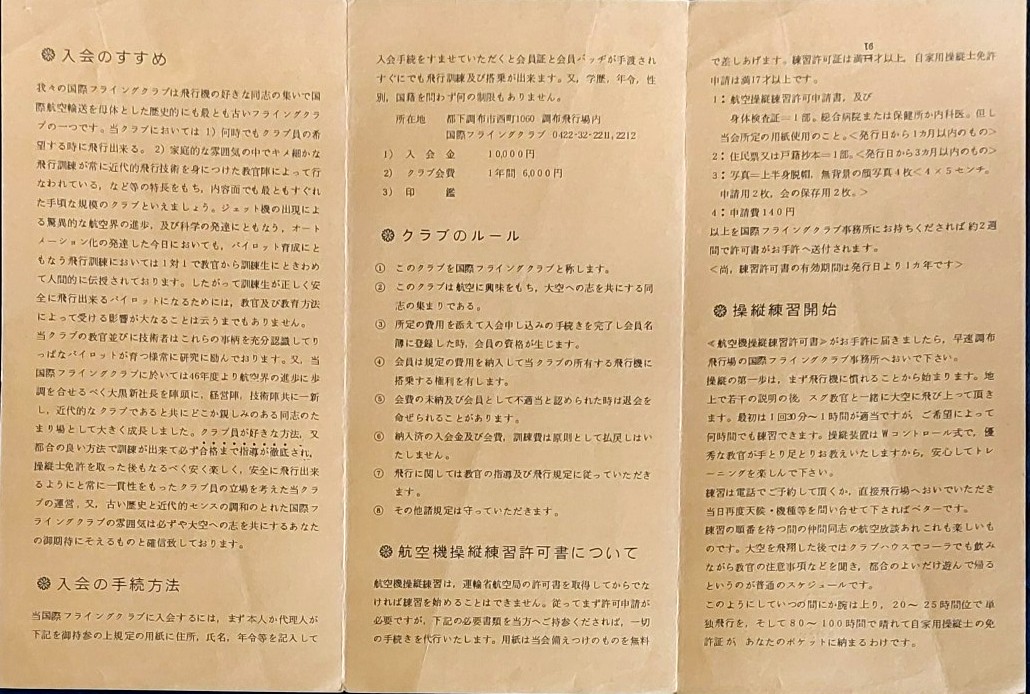 ❀ 入会のすすめ
我々の国際フライングクラブは飛行機の好きな同志の集いで国
際航空輸送を母体とした歴史的にも最とも古いフライングクラ
ブの一つです。当クラブにおいては 1）何時でもクラブ員の希
望する時に飛行出来る。 2）家庭的な雰囲気の中でキメ細かな
飛行訓練が常に近代的飛行技術を身につけた教官陣によって行
なわれている，など等の特長をもち，内容面でも最ともすぐれ
た手頃な規模のクラブといえましょう。ジェット機の出現によ
る驚異的な航空界の進歩，及び科学の発達にともなう，オート
メーション化の発達した今日においても，パイロット育成にと
もなう飛行訓練においては1対1で教官から訓練生にときわめ
て人間的に伝授されております。したがって訓練生が正しく安
全に飛行出来るパイロットになるためには，教官及び教育方法
によって受ける影響が大なることは云うまでもありません。
当クラブの教官並びに技術者はこれらの事柄を充分認識してり
っぱなパイロットが育つ様常に研究に励んでおります。又，当
国際フライングクラブに於いては46年度より航空界の進歩に歩
調を合せるべく大黒新社長を陣頭に，経営陣，技術陣共に一新
し，近代的なクラブであると共にどこか親しみのある同志のた
まり場として大きく成長しました。クラブ員が好きな方法，又
都合の良い方法で訓練が出来て必ず合格まで指導が徹底され，
操縦士免許を取った後もなるべく安く楽しく，安全に飛行出来
るようにと常に一貫性をもったクラブ員の立場を考えた当クラ
ブの運営，又，古い歴史と近代的センスの調和のとれた国際フ
ライングクラブの雰囲気は必ずや大空への志を共にするあなた
の御期待にそえるものと確信致しております。
❀ 入会の手続方法
当国際フライングクラブに入会するには，まず本人か代理人が
下記を御持参の上規定の用紙に住所，氏名，年令等を記入して
入会手続をすませていただくと会員証と会員バッヂが手渡され
すぐにでも飛行訓練及び搭乗が出来ます。又，学歴，年令，性
別，国籍を問わず何の制限もありません。
所在地 都下調布市西町1060 調布飛行場内
国際フライングクラブ 0422-32-2211, 2212
1） 入 会 金 10,000円
2） クラブ会費 1年間 6,000円
3） 印 鑑
❀ クラブのルール
① このクラブを国際フライングクラブと称します。
② このクラブは航空に興味をもち，大空への志を共にする同
志の集まりである。
③ 所定の費用を添えて入会申し込みの手続きを完了し会員名
簿に登録した時，会員の資格が生じます。
④ 会員は規定の費用を納入して当クラブの所有する飛行機に
搭乗する権利を有します。
⑤ 会費の未納及び会員として不適当と認められた時は退会を
命ぜられることがあります。
⑥ 納入済の入会金及び会費，訓練費は原則として払戻しはい
たしません。
⑦ 飛行に関しては教官の指導及び飛行規定に従っていただき
ます。
⑧ その他諸規定は守っていただきます。
❀ 航空機操縦練習許可書について
航空機操縦練習は，運輸省航空局の許可書を取得してからでな
ければ練習を始めることはできません。従ってまず許可申請が
必要ですが，下記の必要書類を当方へご持参くだされば，一切
の手続きを代行いたします。用紙は当会備えつけのものを無料
16
で差しあげます。練習許可証は満才以上，自家用操縦士免許
申請は満17才以上です。
1：航空機操縦練習許可申請書，及び
身体検査証＝1部。総合病院または保健所か内科医。但し
当会所定の用紙使用のこと。<発行日から1カ月以内のもの>
2：住民票又は戸籍抄本＝1部。<発行日から3カ月以内のもの>
3：写真＝上半身脱帽，無背景の顔写真4枚<4×5センチ。
申請用2枚，会の保存用2枚。>
4：申請費140円
以上を国際フライングクラブ事務所にお持ちくだされば約2週
間で許可書がお手許へ送付されます。
<尚，練習許可書の有効期間は発行日より1カ年です>
❀ 操縦練習開始
≪航空機操縦練習許可書≫がお手許に届きましたら，早速調布
飛行場の国際フライングクラブ事務所へおいで下さい。
操縦の第一歩は，まず飛行機に慣れることから始まります。地
上で若干の説明の後，スグ教官と一緒に大空に飛び上って頂き
ます。最初は1回30分～1時間が適当ですが，ご希望によって
何時間でも練習できます。操縦装置はWコントロール式で，優
秀な教官が手とり足とりお教えいたしますから，安心してトレ
ーニングを楽しんで下さい。
練習は電話でご予約して頂くか，直接飛行場へおいでいただき
当日再度天候・機種等を問い合せて下さればベターです。
練習の順番を待つ間の仲間同志の航空放談あれこれも楽しいも
のです。大空を飛翔した後ではクラブハウスでコーラでも飲み
ながら教官の注意事項などを聞き，都合のよいだけ遊んで帰る
というのが普通のスケジュールです。
このようにしていつの間にか腕は上り，20～25時間位で単
独飛行を，そして80～100時間で晴れて自家用操縦士の免
許証が，あなたのポケットに納まるわけです。